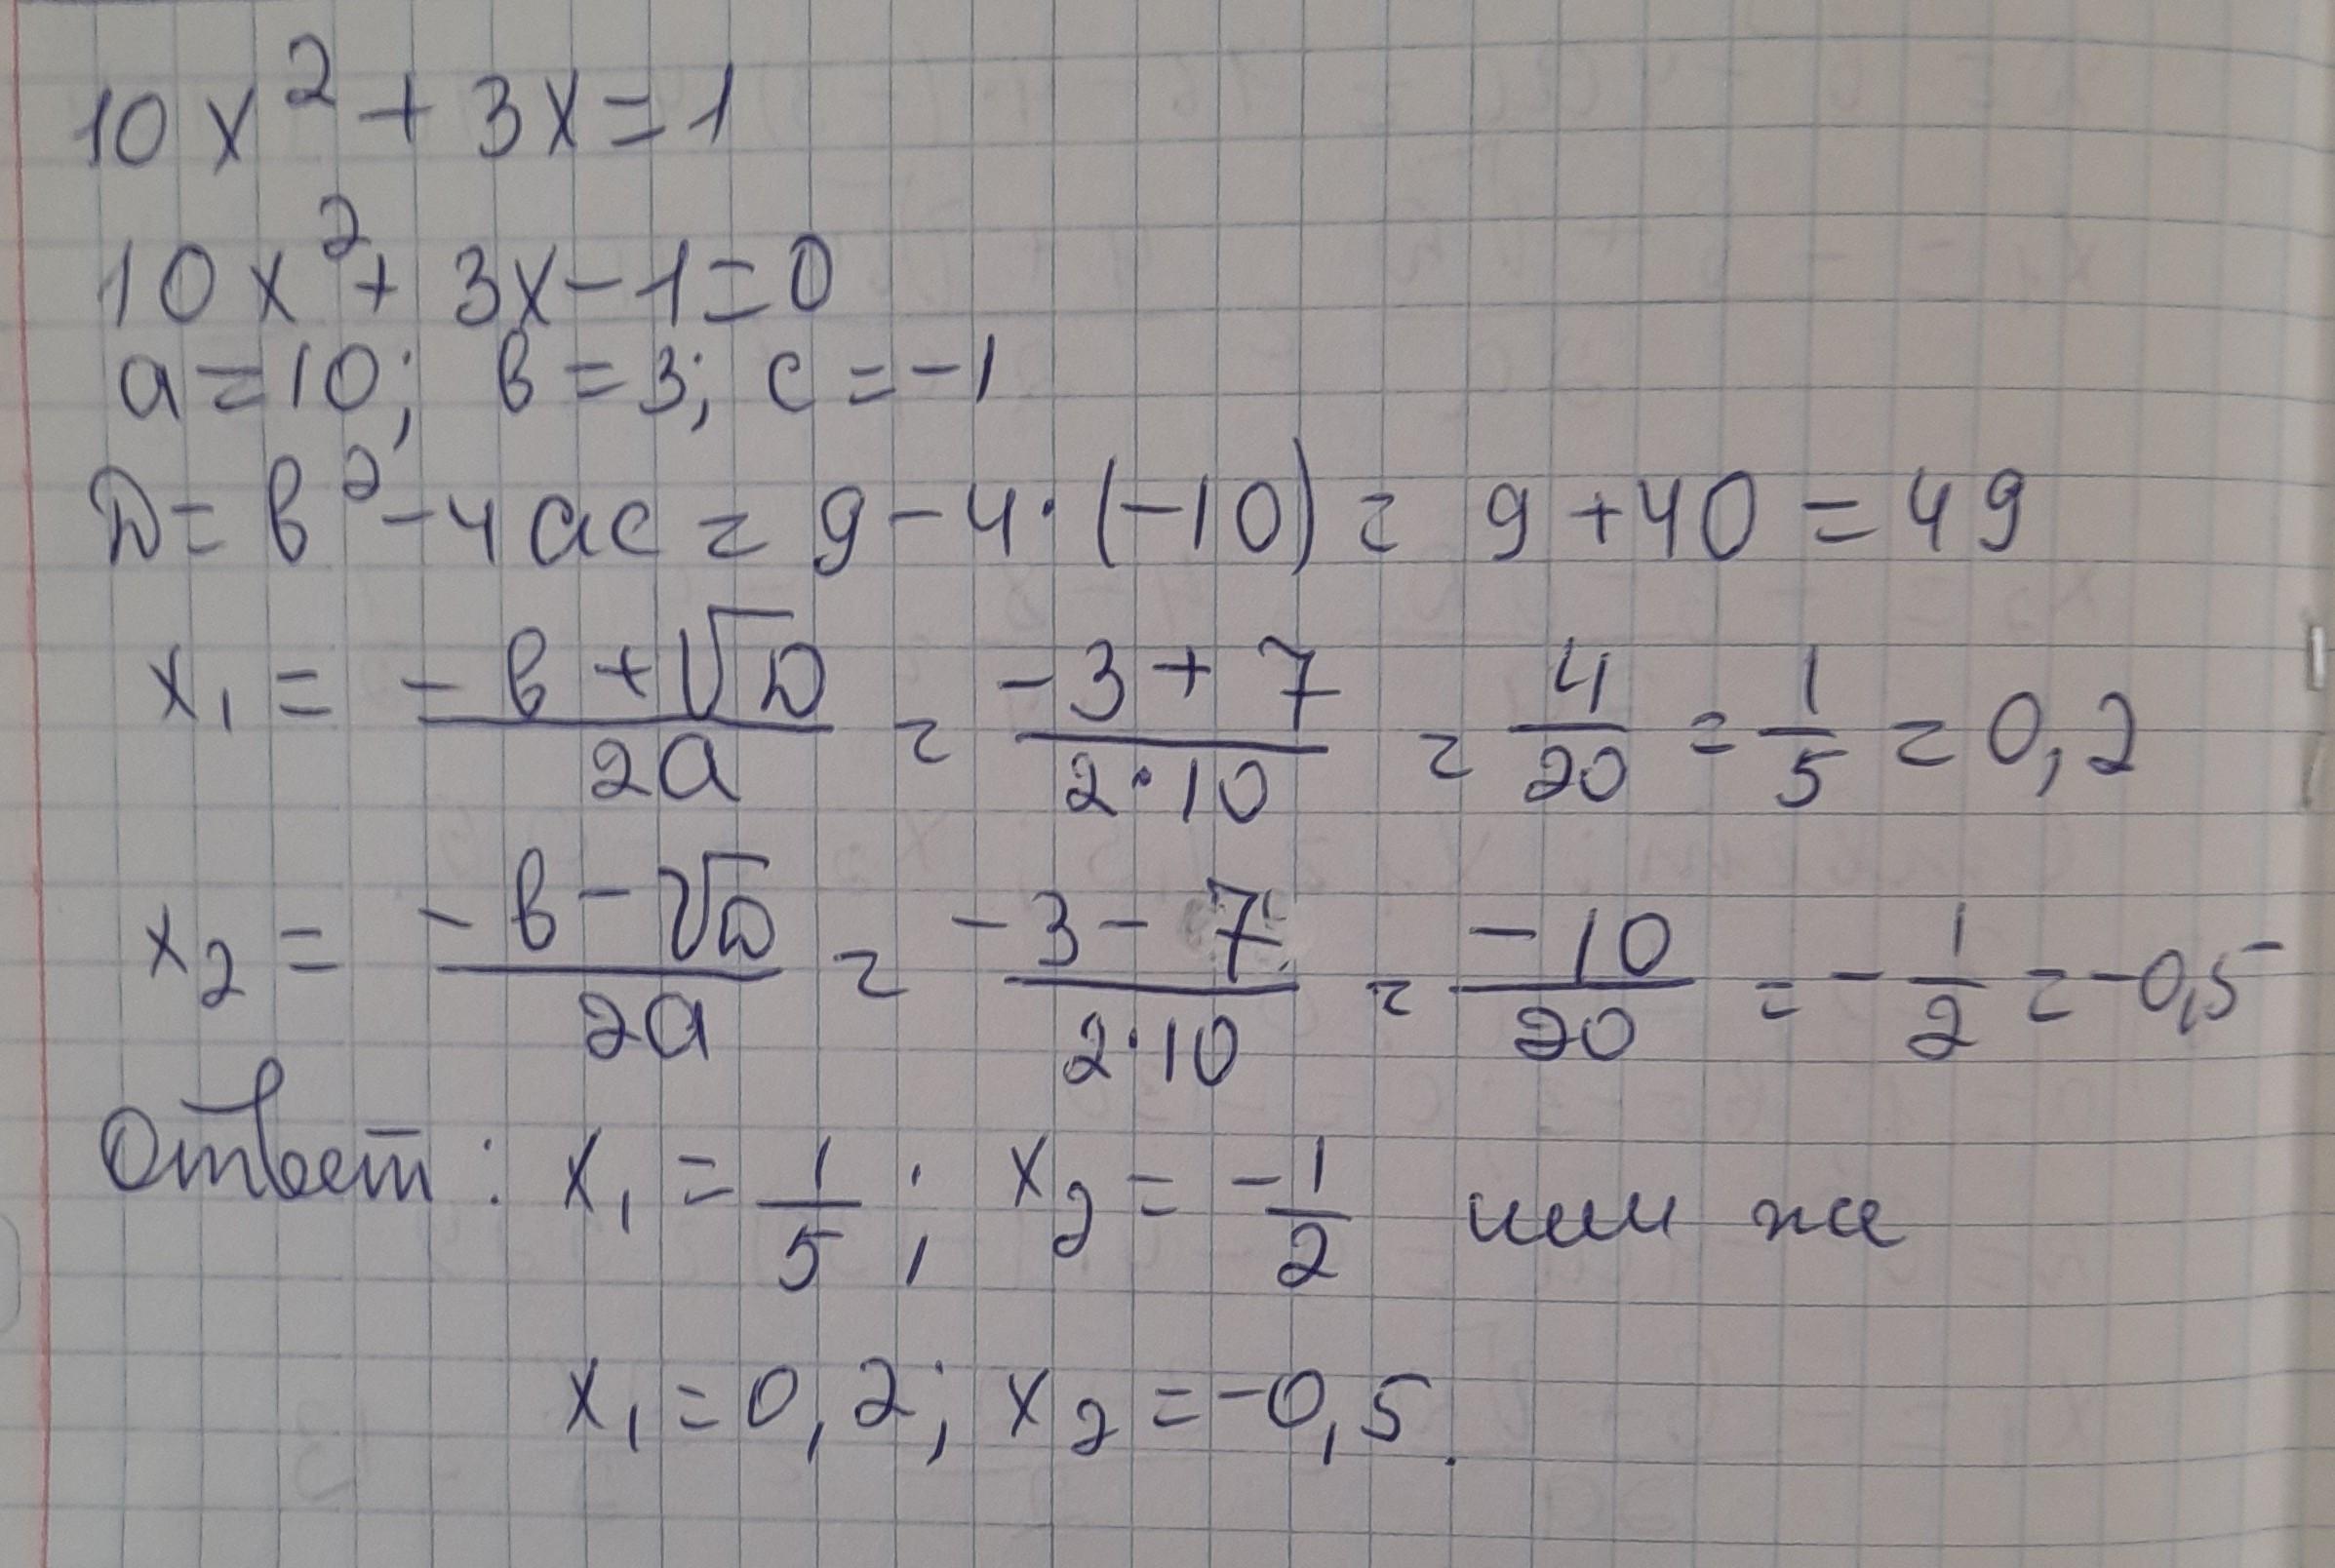 10x² + 3x = 1
10x² + 3x - 1 = 0
a = 10; в = 3; c = -1
D = в² - 4ac = 9 - 4·(-10) = 9 + 40 = 49
x₁ = (-в + √D)/(2a) = (-3 + 7)/(2·10) = 4/20 = 1/5 = 0,2
x₂ = (-в - √D)/(2a) = (-3 - 7)/(2·10) = -10/20 = -1/2 = -0,5
Ответ: x₁ = 1/5; x₂ = -1/2 или же
x₁ = 0,2; x₂ = -0,5.